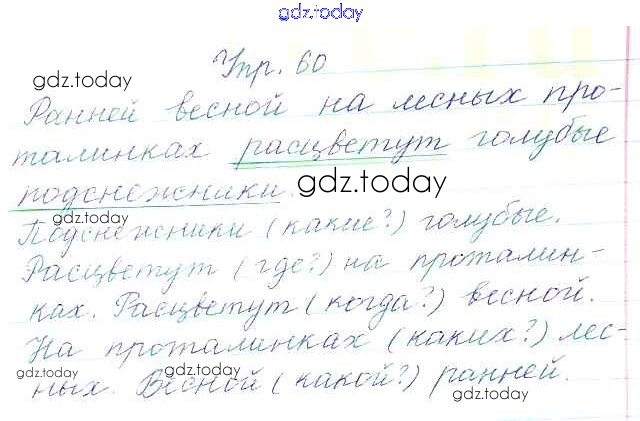 gdz.today
Упр. 60
gdz.today
Ранней весной на лесных про-
талинках расцветут голубые
подснежники.
gdz.today
gdz.today
Подснежники (какие?) голубые.
Расцветут (где?) на проталин-
gdz.today
ках. Расцветут (когда?) весной.
gdz.today
На проталинках (каких?) лес-
gdz.today
gdz.today
ных. Весной (какой?) ранней.
gdz.today